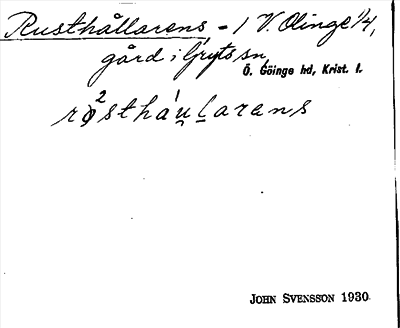 Rusthållarens - 1 V. Olinge 1/4,
gård i Gryts sn,
Ö. Göinge hd, Krist. l.
rø²sthá́u̯l̠arens
JOHN SVENSSON 1930.